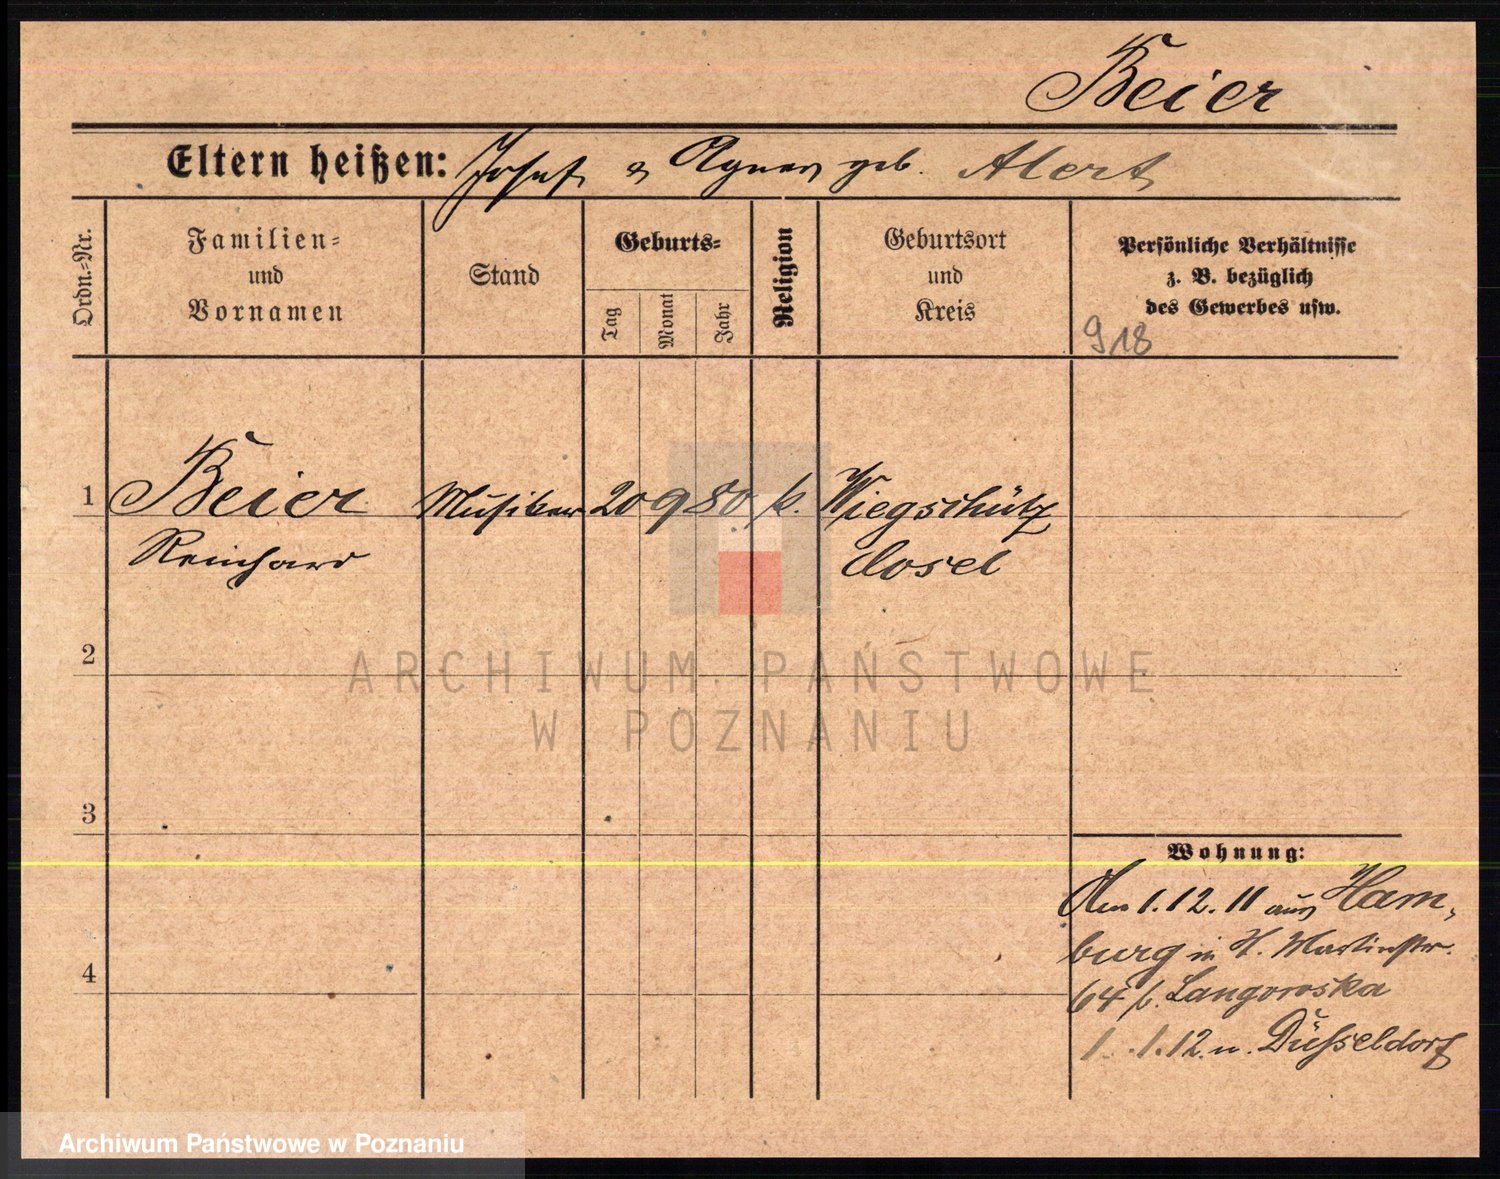 Beier
Eltern heißen: Josef & Agnes geb. Alert
Ordn.=Nr.
Familien=
und
Vornamen
Stand
Geburts=
Tag
Monat
Jahr
Religion
Geburtsort
und
Kreis
Persönliche Verhältnisse
z. B. bezüglich
des Gewerbes usw.
918
1 Beier Musiker 20 9 80 k. Wiegschütz
Reinhard Cosel
2
ARCHIWUM PAŃSTWOWE
W POZNANIU
3
Wohnung:
Am 1.12.11 aus Ham-
burg in H. Martinstr.
64 b. Langowska
4
1.1.12 n. Düsseldorf
Archiwum Państwowe w Poznaniu